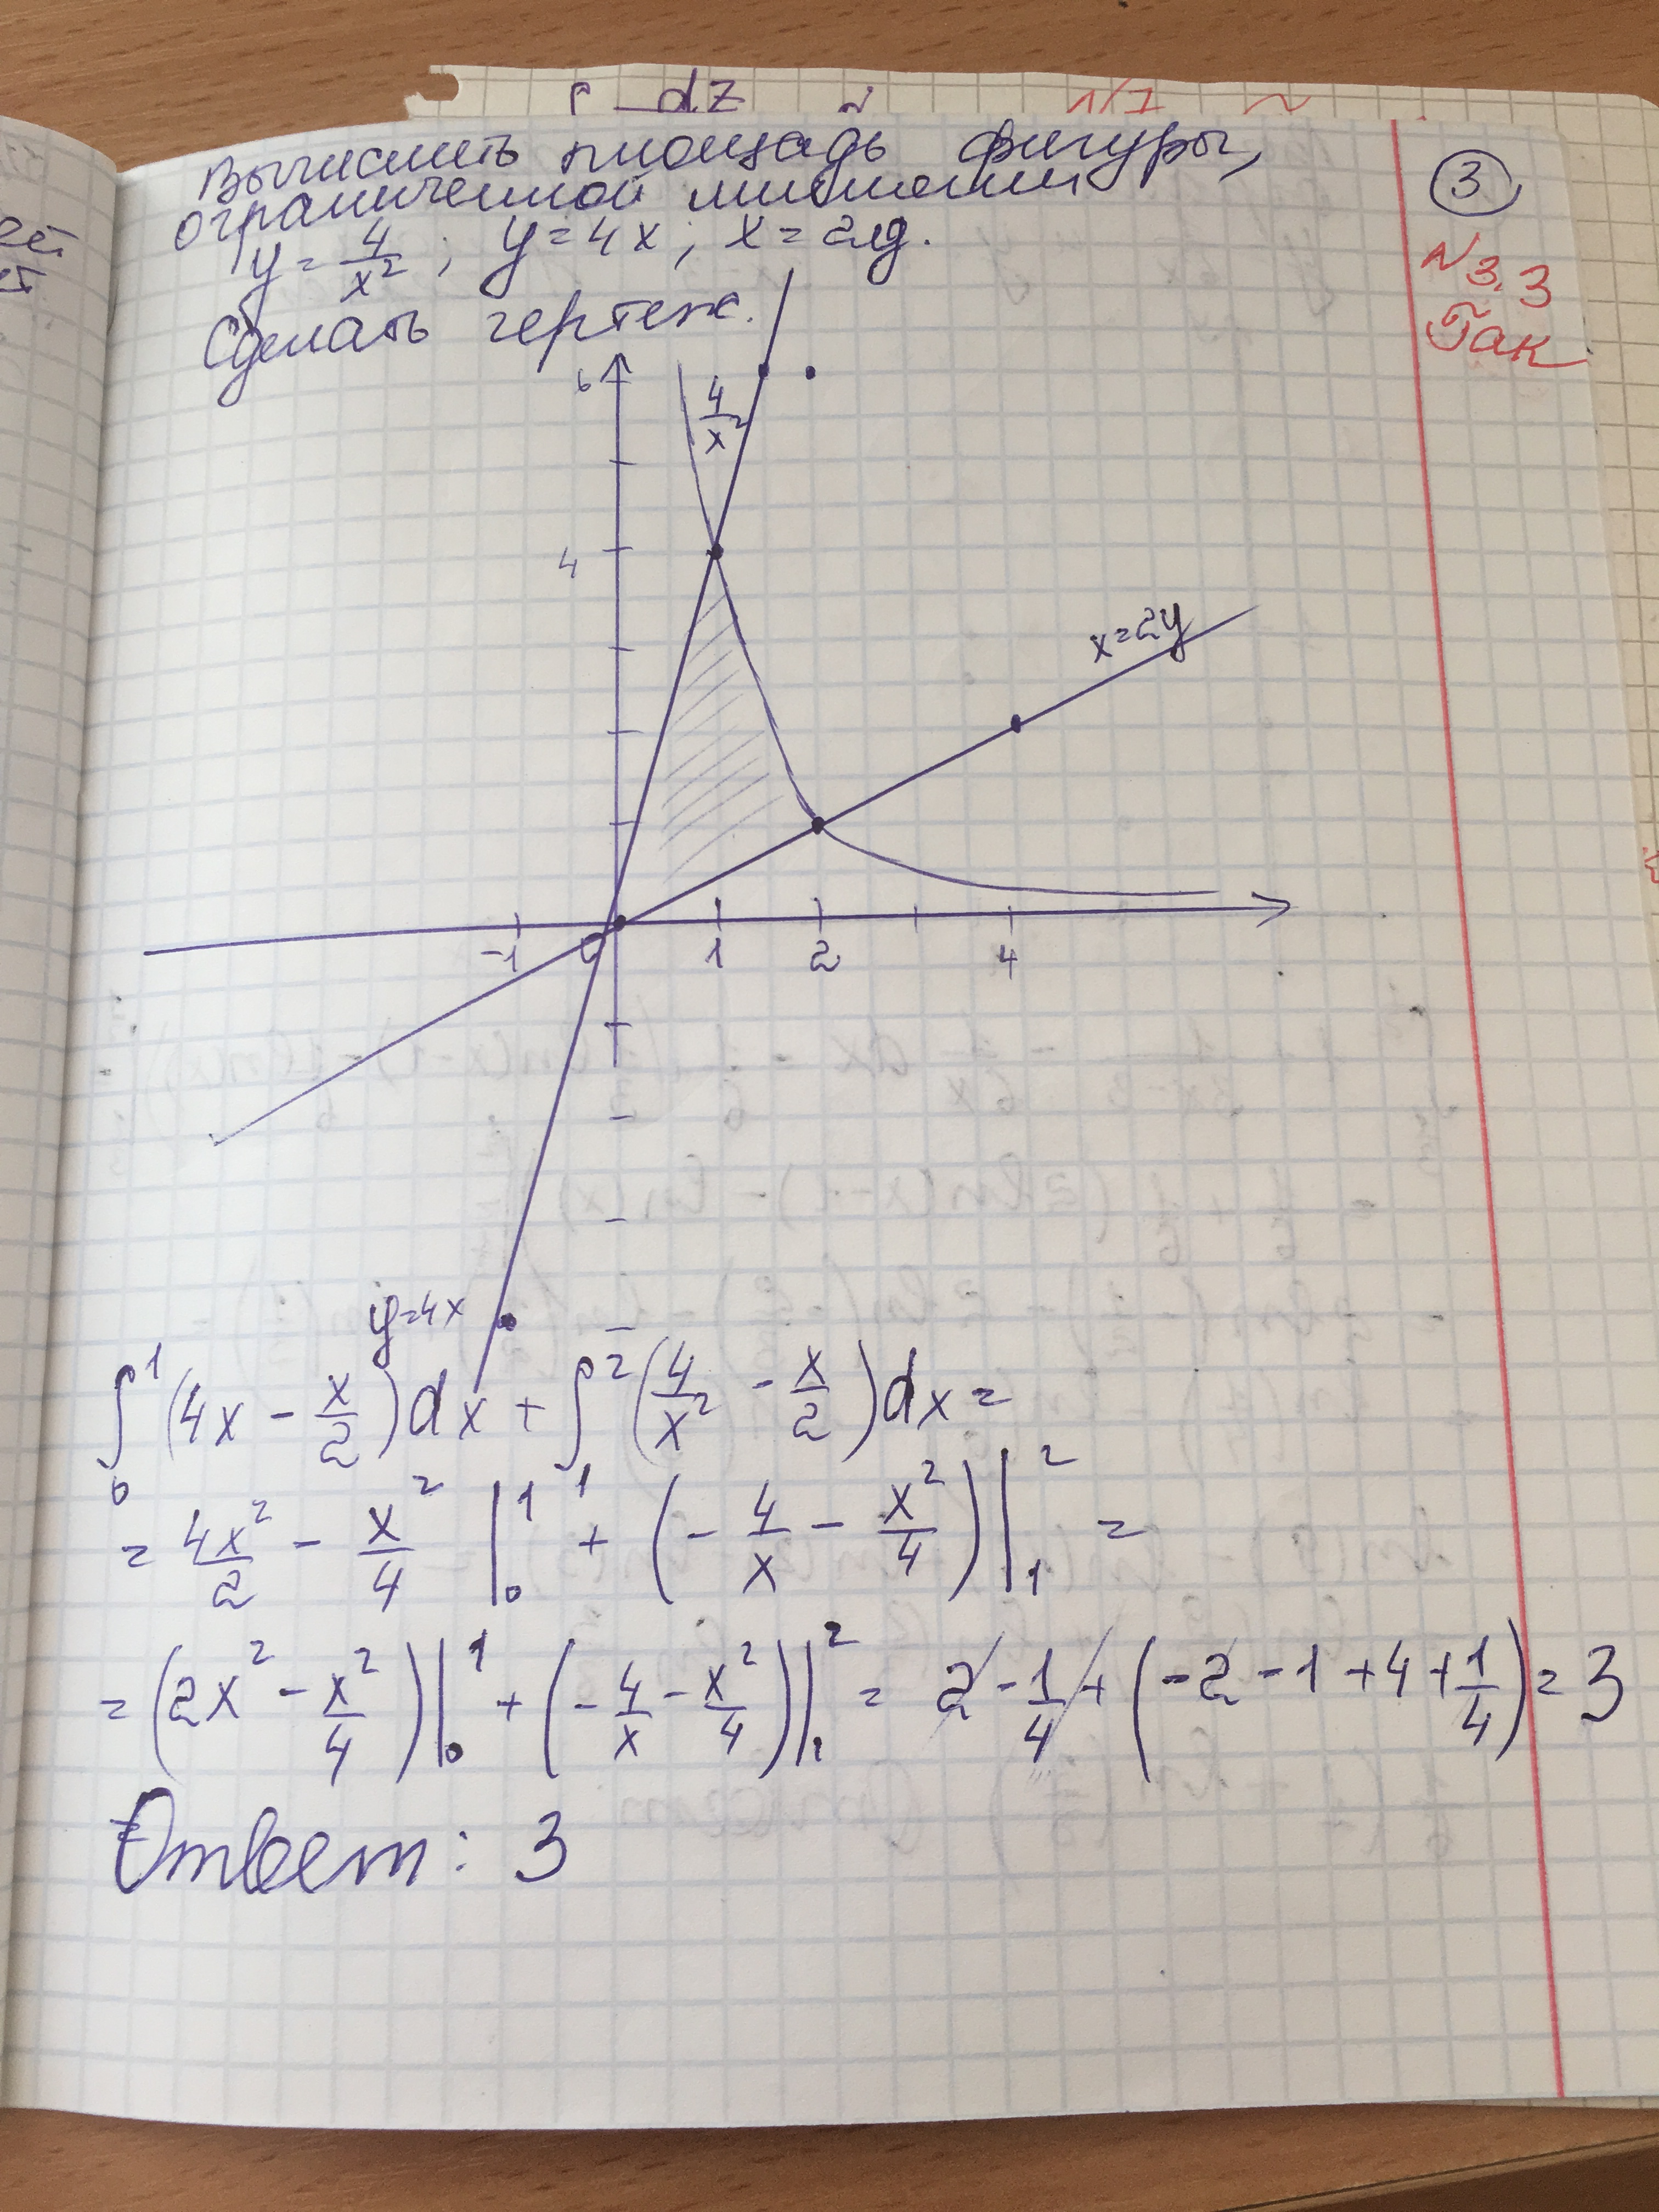 dz
Вычислить площадь фигуры,
ограниченной линиями
y = 4/x²; y = 4x; x = 2y.
Сделать чертеж.
3
N3.3
Так
6
4/x²
4
x=2y
-1 0 1 2 4
y=4x
∫₀¹(4x - x/2)dx + ∫₁²(4/x² - x/2)dx =
= 4x²/2 - x²/4 |₀¹ + (-4/x - x²/4)|₁² =
= (2x² - x²/4)|₀¹ + (-4/x - x²/4)|₁² = 2 - 1/4 + (-2 - 1 + 4 + 1/4) = 3
Ответ: 3